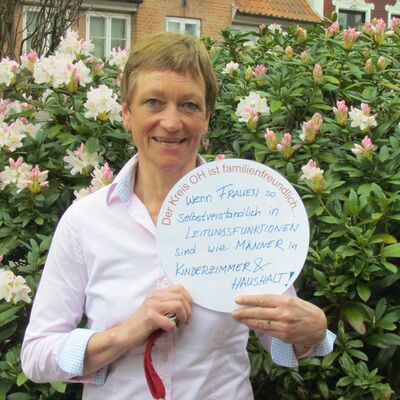 Der Kreis OH ist familienfreundlich...
Wenn FRAUEN so
selbstverständlich in
LEITUNGSFUNKTIONEN
sind wie MÄNNER in
KINDERZIMMER &
HAUSHALT!